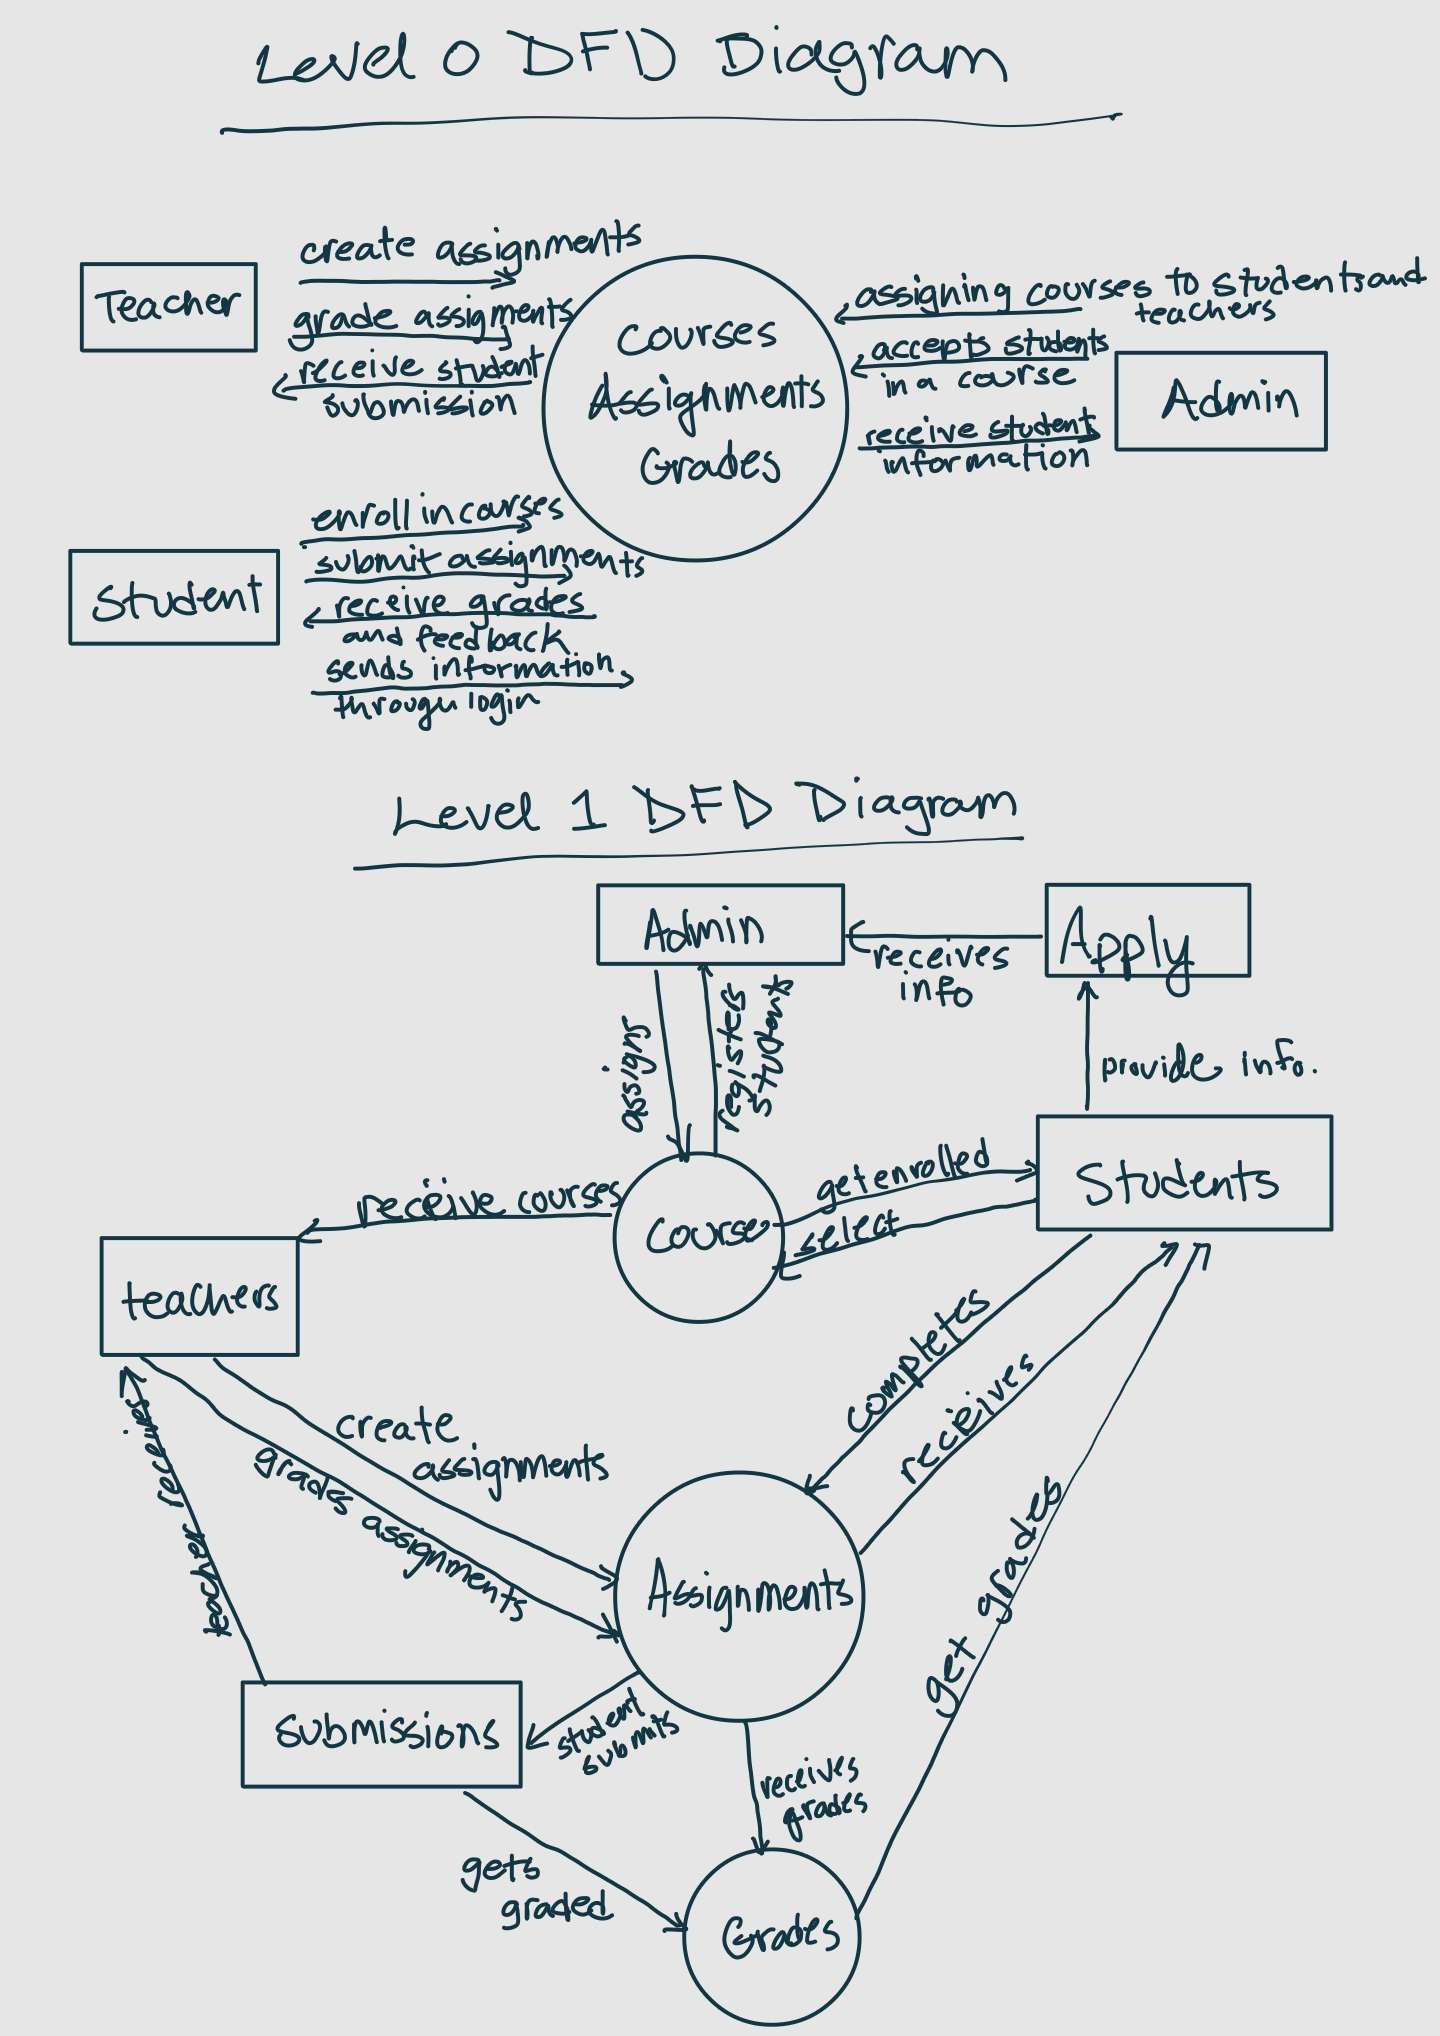 Level 0 DFD Diagram
Teacher
create assignments
grade assignments
receive student
submission
Courses
Assignments
Grades
assigning courses to students and
teachers
accepts students
in a course
receive student
information
Admin
Student
enroll in courses
submit assignments
receive grades
and feedback
sends information
through login
Level 1 DFD Diagram
Admin
receives
info
Apply
assigns
registers
student
provide info.
Students
get enrolled
select
Course
receive courses
teachers
create
assignments
grades assignments
teacher receives
completes
receives
get grades
Assignments
submissions
student
submits
receives
grades
gets
graded
Grades